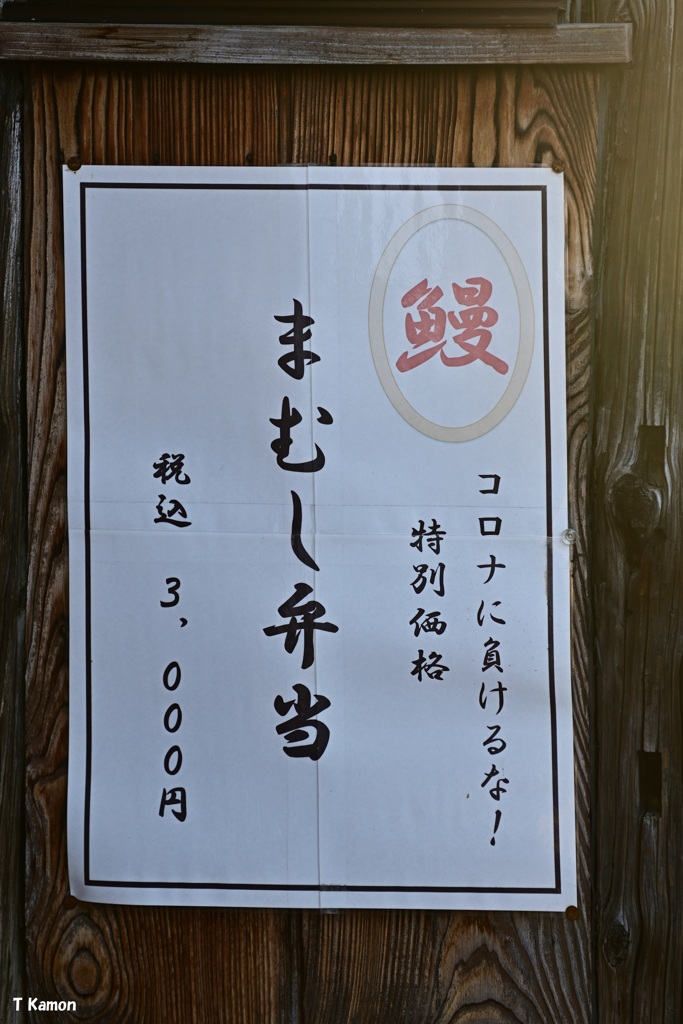 鰻
コロナに負けるな!
特別価格
まむし弁当
税込 3,000円
T Kamon